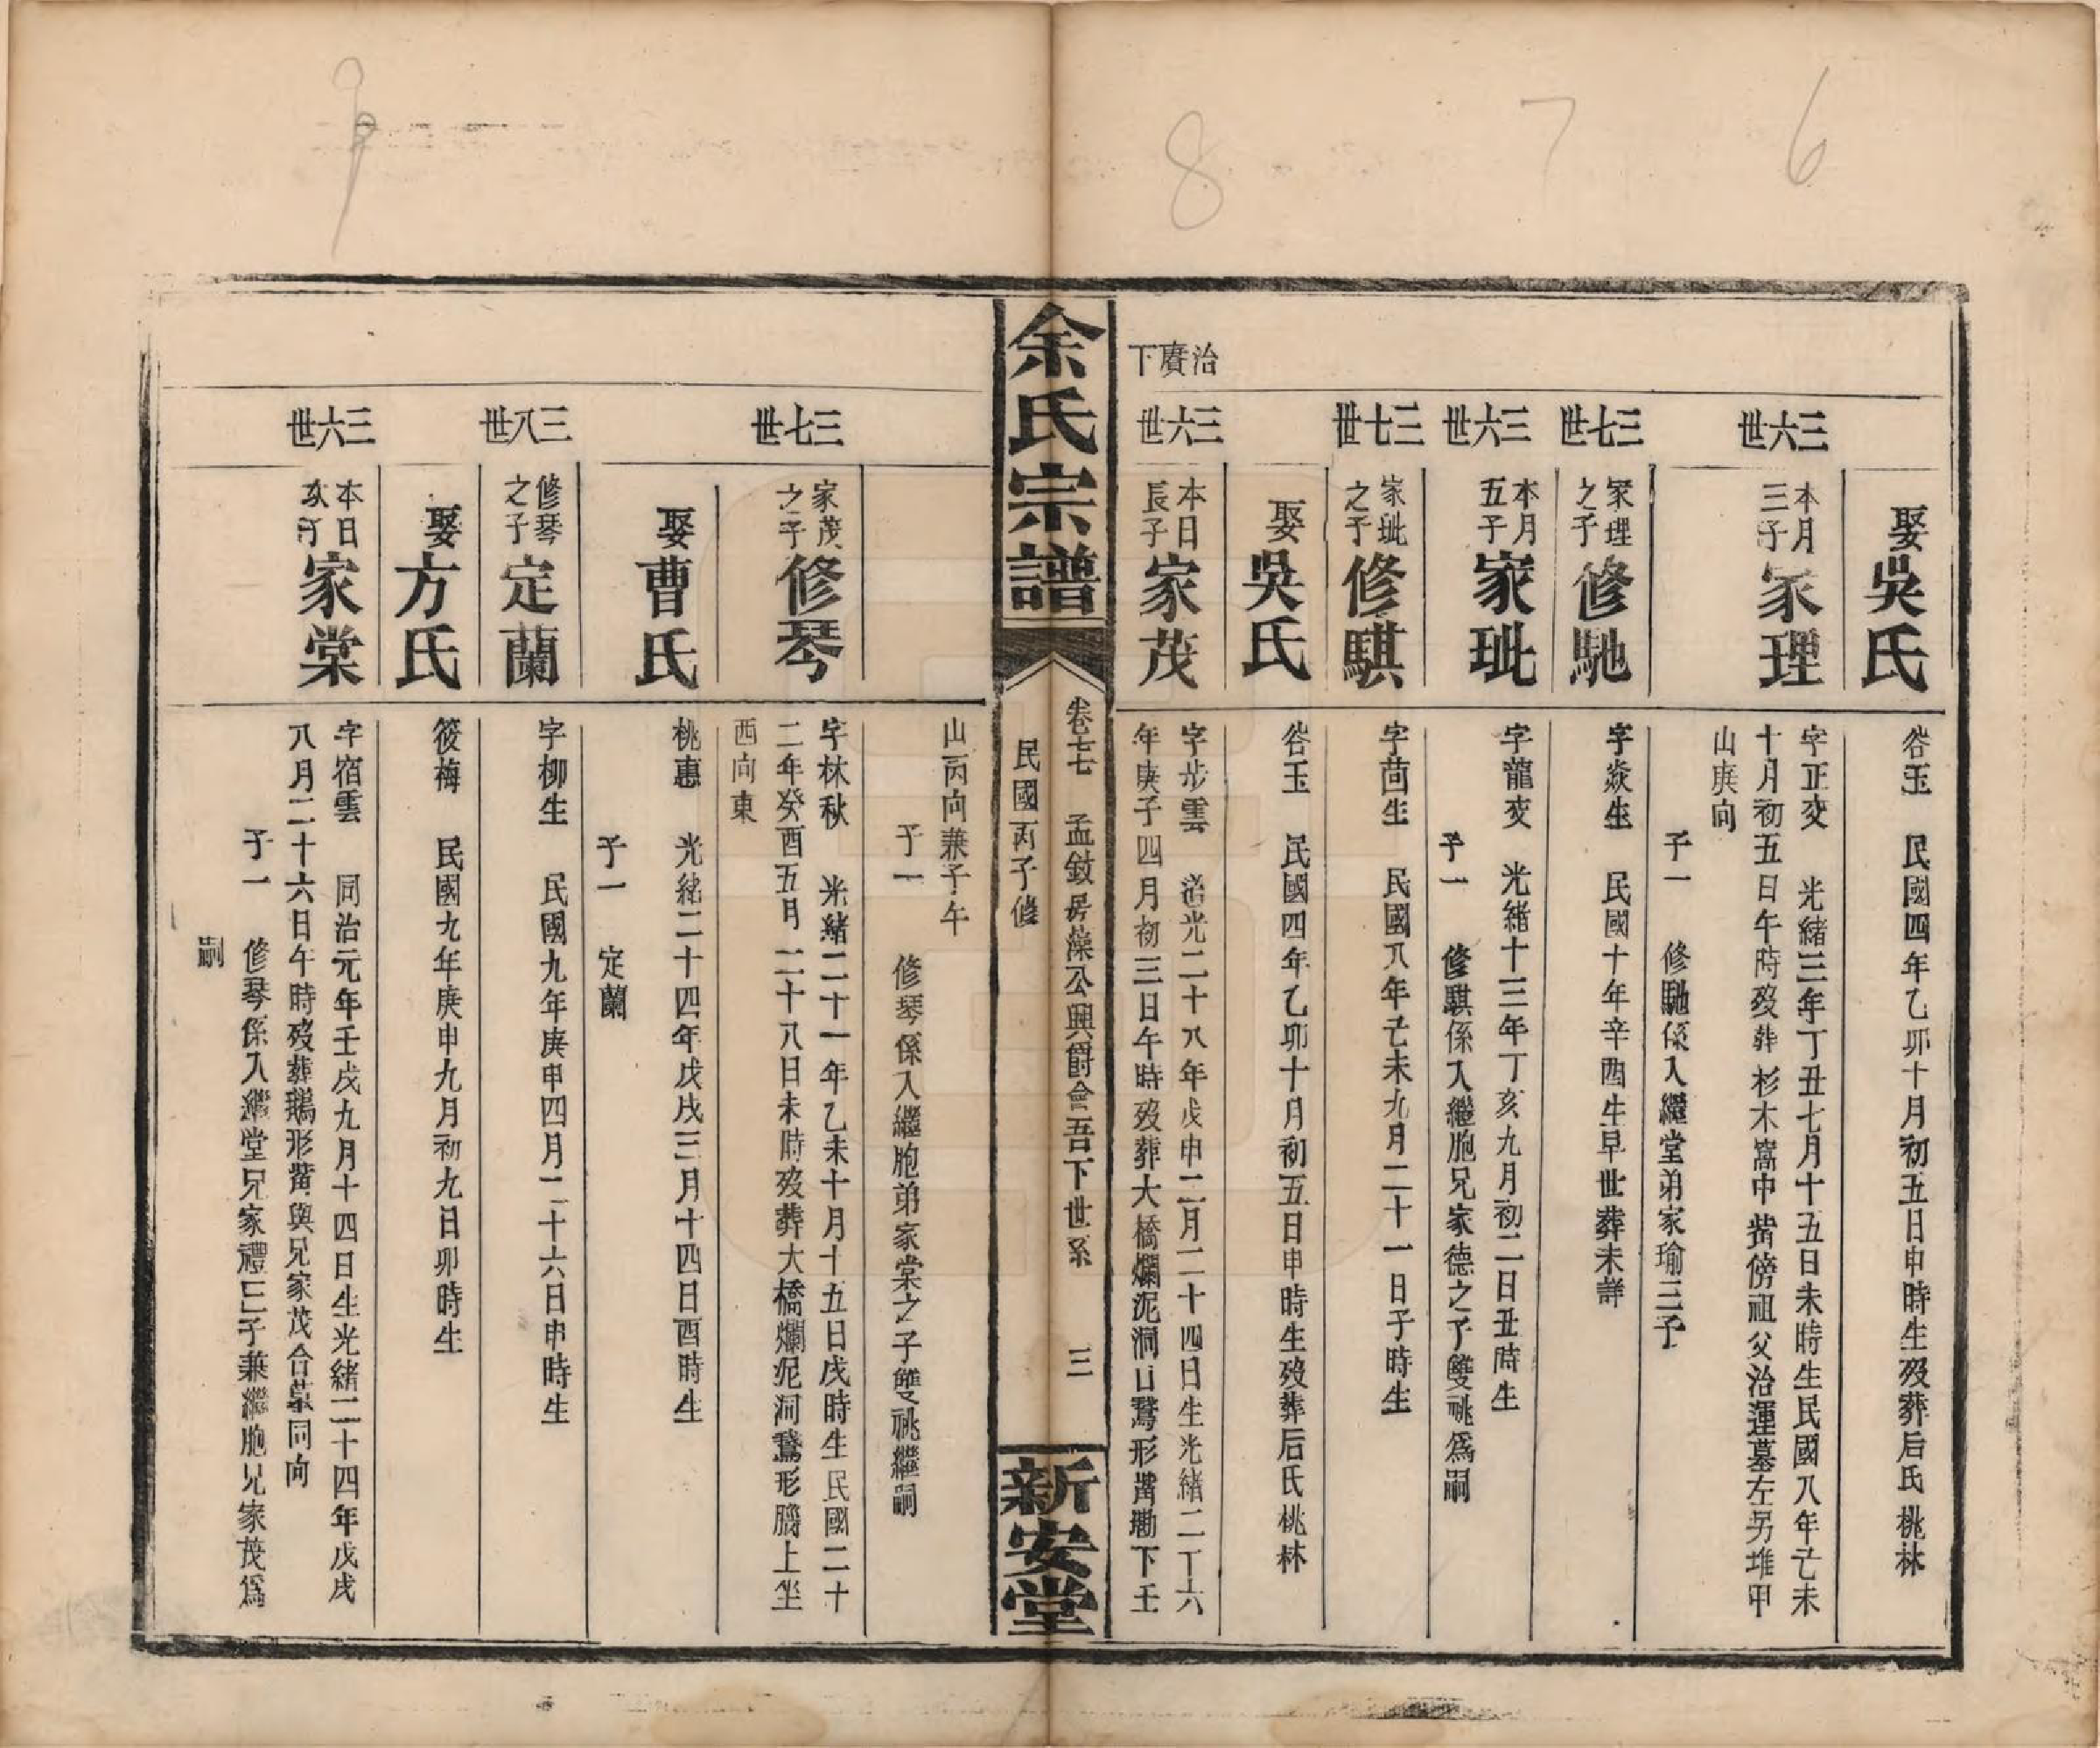 6
7
8
9
治賡下
娶吳氏
谷玉　民國四年乙卯十月初五日申時生歿葬后氏桃林
三六世
本月三子家理
字正交　光緒三年丁丑七月十五日未時生民國八年己未
十月初五日午時歿葬杉木嵩中嘴傍祖父治運墓左另堆甲
山庚向
子一　修馳係入繼堂弟家瑜三子
三七世
家理之子修馳
字焱生　民國十年辛酉生早世葬未詳
三六世
本月五子家玼
字龍交　光緒十三年丁亥九月初二日丑時生
子一　修騏係入繼胞兄家德之子雙祧爲嗣
三七世
家玼之子修騏
字茴生　民國八年己未九月二十一日子時生
娶吳氏
谷玉　民國四年乙卯十月初五日申時生歿葬后氏桃林
三六世
本日長子家茂
字步雲　道光二十八年戊申二月二十四日生光緒二十六
年庚子四月初三日午時歿葬大橋爛泥洞口鵞形嘴塝下壬
余氏宗譜
卷七　孟銨房藻公興爵會吾下世系　三
民國丙子修
新安堂
山丙向兼子午
子一　修琴係入繼胞弟家棠之子雙祧繼嗣
三七世
家茂之子修琴
字林秋　光緒二十一年乙未十月十五日戌時生民國二十
二年癸酉五月二十八日未時歿葬大橋爛泥洞鵞形膅上坐
西向東
娶曹氏
桃惠　光緒二十四年戊戌三月十四日酉時生
子一　定蘭
三八世
修琴之子定蘭
字柳生　民國九年庚申四月二十六日申時生
娶方氏
筱梅　民國九年庚申九月初九日卯時生
三六世
本日次子家棠
字宿雲　同治元年壬戌九月十四日生光緒二十四年戊戌
八月二十六日午時歿葬鵝形嘴與兄家茂合墓同向
子一　修琴係入繼堂兄家禮三子兼繼胞兄家茂爲
嗣